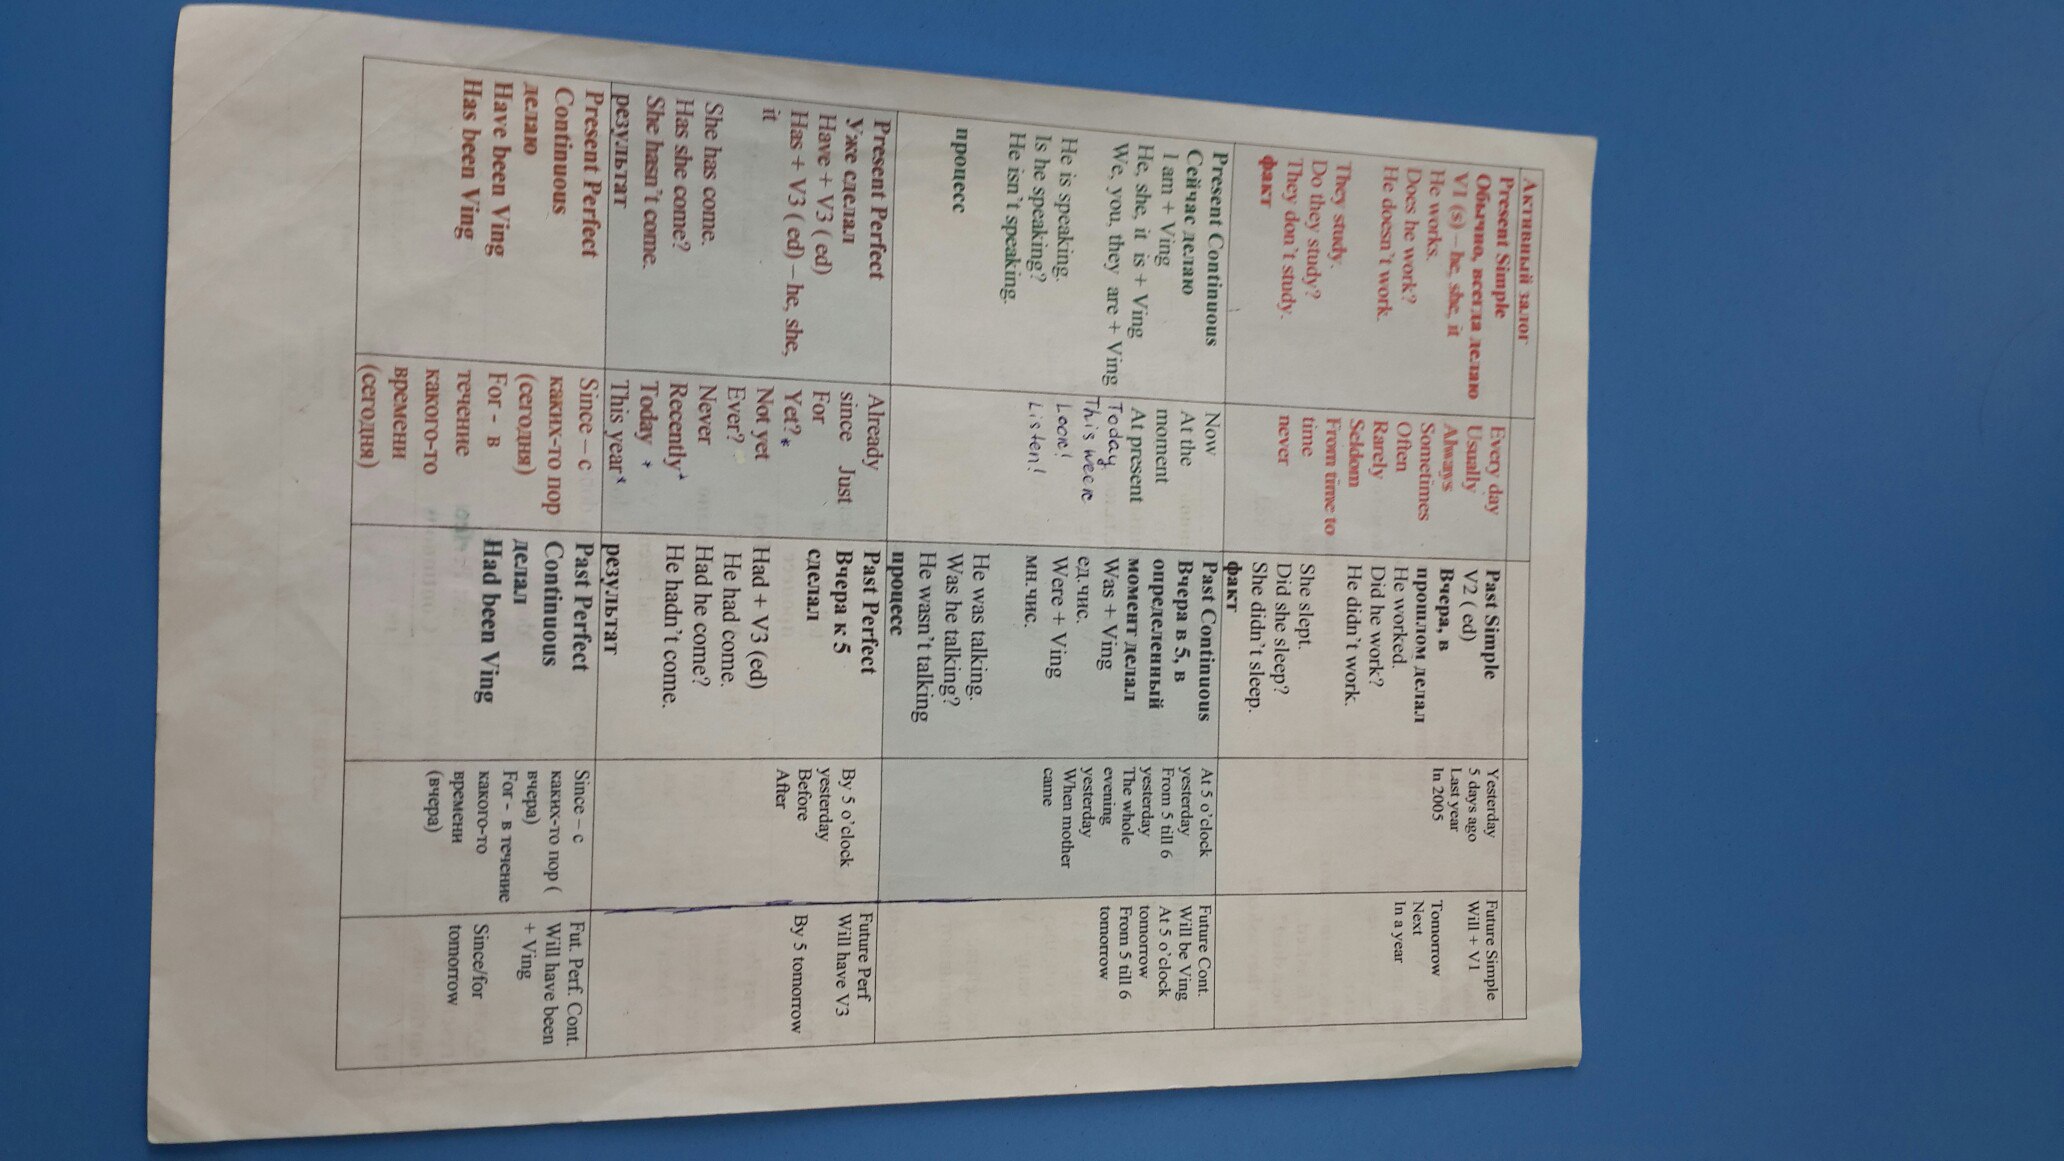 Активный залог
Present Simple
Обычно, всегда делаю
V1 (s) – he, she, it
He works.
Does he work?
He doesn't work.
They study.
Do they study?
They don't study.
факт
Every day
Usually
Always
Sometimes
Often
Rarely
Seldom
From time to
time
never
Past Simple
V2 ( ed)
Вчера, в
прошлом делал
He worked.
Did he work?
He didn't work.
She slept.
Did she sleep?
She didn't sleep.
факт
Yesterday
5 days ago
Last year
In 2005
Future Simple
Will + V1
Tomorrow
Next
In a year
Present Continuous
Сейчас делаю
I am + Ving
He, she, it is + Ving
We, you, they are + Ving
He is speaking.
Is he speaking?
He isn't speaking.
процесс
Now
At the
moment
At present
Today
This week
Look!
Listen!
Past Continuous
Вчера в 5, в
определенный
момент делал
Was + Ving
ед.чис.
Were + Ving
мн.чис.
He was talking.
Was he talking?
He wasn't talking
процесс
At 5 o'clock
yesterday
From 5 till 6
yesterday
The whole
evening
yesterday
When mother
came
Future Cont.
Will be Ving
At 5 o'clock
tomorrow
From 5 till 6
tomorrow
Present Perfect
Уже сделал
Have + V3 ( ed)
Has + V3 ( ed) – he, she,
it
She has come.
Has she come?
She hasn't come.
результат
Already
since Just
For
Yet? *
Not yet
Ever?
Never
Recently *
Today *
This year *
Past Perfect
Вчера к 5
сделал
Had + V3 (ed)
He had come.
Had he come?
He hadn't come.
результат
By 5 o'clock
yesterday
Before
After
Future Perf
Will have V3
By 5 tomorrow
Present Perfect
Continuous
делаю
Have been Ving
Has been Ving
Since – с
каких-то пор
(сегодня)
For - в
течение
какого-то
времени
(сегодня)
Past Perfect
Continuous
делал
Had been Ving
Since – с
каких-то пор (
вчера)
For - в течение
какого-то
времени
(вчера)
Fut. Perf. Cont.
Will have been
+ Ving
Since/for
tomorrow